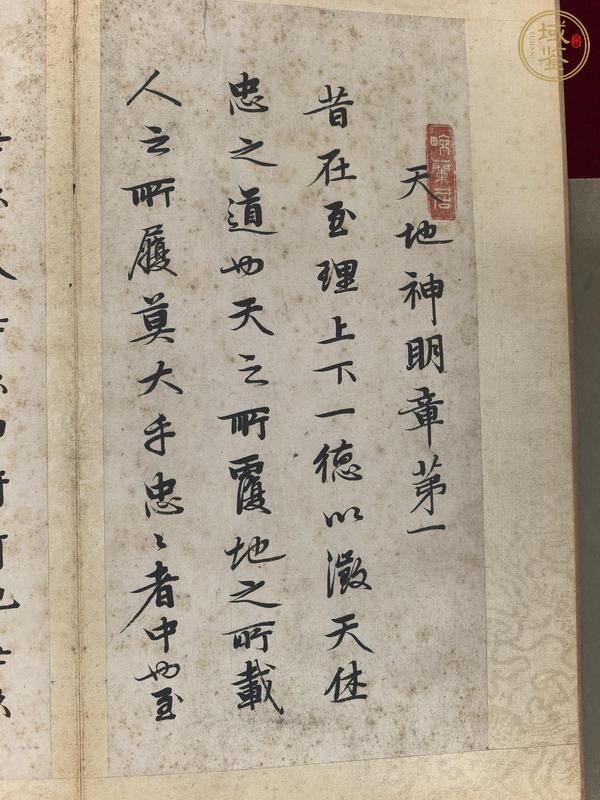 天地神明章第一
昔在至理上下一德以徵天休
忠之道也天之所覆地之所載
人之所履莫大乎忠々者中也至
域鉴